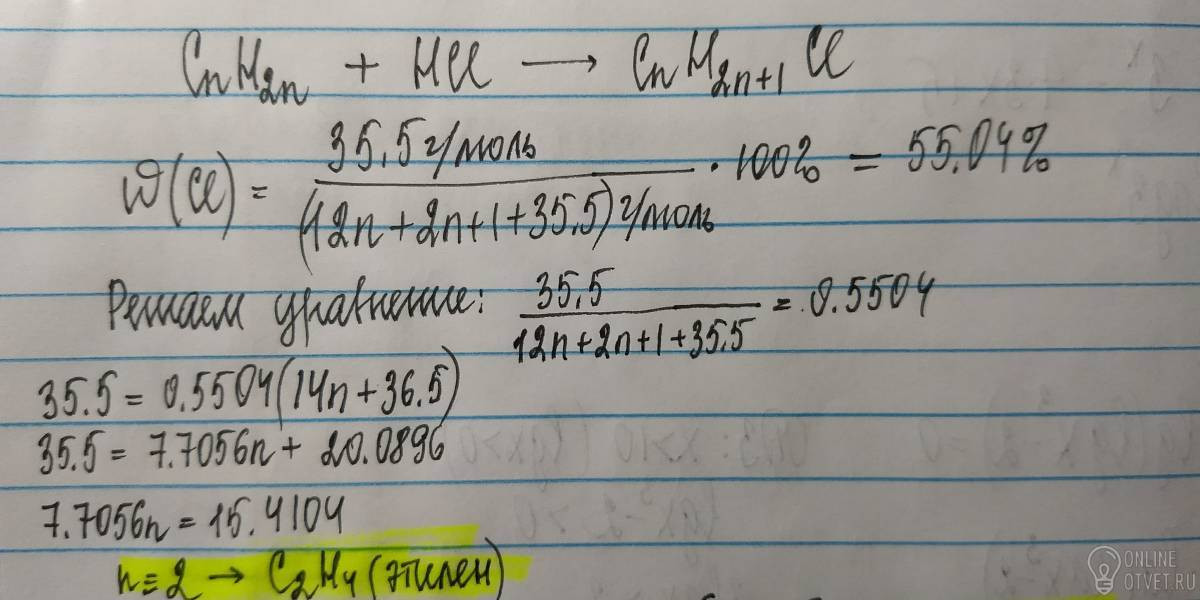 CnH2n + HCl → CnH2n+1Cl
W(Cl) = 35.5 г/моль / (12n+2n+1+35.5) г/моль · 100% = 55.04%
Решаем уравнение: 35.5 / 12n+2n+1+35.5 = 0.5504
35.5 = 0.5504(14n+36.5)
35.5 = 7.7056n + 20.0896
7.7056n = 15.4104
n=2 → C2H4 (этилен)
ONLINE
OTVET.RU